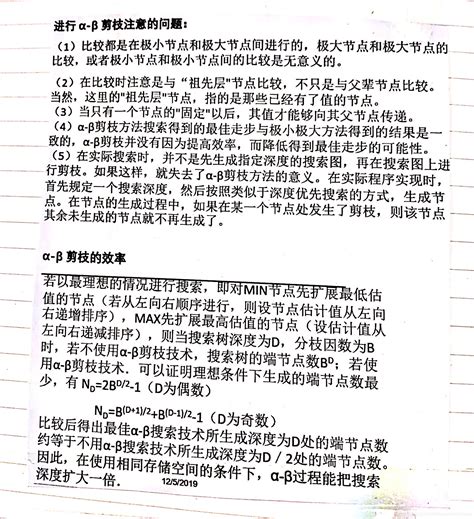 进行 α-β 剪枝注意的问题：
（1）比较都是在极小节点和极大节点间进行的，极大节点和极大节点的
比较，或者极小节点和极小节点间的比较是无意义的。
（2）在比较时注意是与“祖先层"节点比较，不只是与父辈节点比较。
当然，这里的"祖先层"节点，指的是那些已经有了值的节点。
（3）当只有一个节点的"固定"以后，其值才能够向其父节点传递。
（4）α-β剪枝方法搜索得到的最佳走步与极小极大方法得到的结果是一
致的，α-β剪枝并没有因为提高效率，而降低得到最佳走步的可能性。
（5）在实际搜索时，并不是先生成指定深度的搜索图，再在搜索图上进
行剪枝。如果这样，就失去了α-β剪枝方法的意义。在实际程序实现时，
首先规定一个搜索深度，然后按照类似于深度优先搜索的方式，生成节
点。在节点的生成过程中，如果在某一个节点处发生了剪枝，则该节点
其余未生成的节点就不再生成了。
α-β 剪枝的效率
若以最理想的情况进行搜索，即对MIN节点先扩展最低估
值的节点（若从左向右顺序进行，则设节点估计值从左向
右递增排序），MAX先扩展最高估值的节点（设估计值从
左向右递减排序），则当搜索树深度为D，分枝因数为B
时，若不使用α-β剪枝技术，搜索树的端节点数Bᴰ；若使
用α-β剪枝技术．可以证明理想条件下生成的端节点数最
少，有 N_D=2B^{D/2}-1（D为偶数）
N_D=B^{(D+1)/2}+B^{(D-1)/2}-1（D为奇数）
比较后得出最佳α-β搜索技术所生成深度为D处的端节点数
约等于不用α-β搜索技术所生成深度为D / 2处的端节点数。
因此，在使用相同存储空间的条件下，α-β过程能把搜索
深度扩大一倍．
12/5/2019